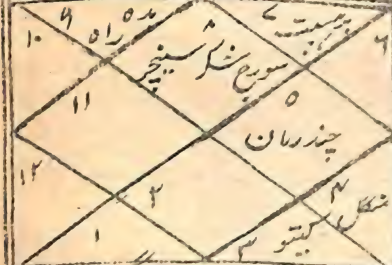 ۱۰ ۹ بدہ راہ ۸ ۷ برہسپت ۶
سورج شکر سنیچر
۱۱ ۵
چندرمان
۱۲ ۲ ۴
منگل کیتو
۱ ۳